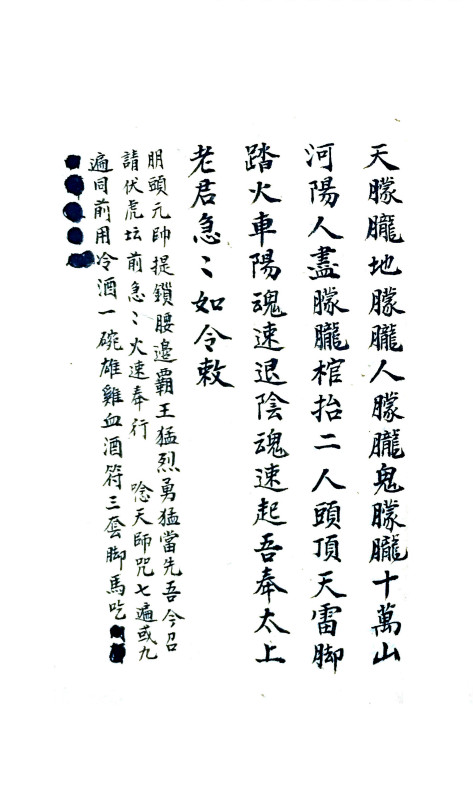 天朦朧地朦朧人朦朧鬼朦朧十萬山
河陽人盡朦朧棺抬二人頭頂天雷脚
踏火車陽魂速退陰魂速起吾奉太上
老君急〻如令敕
朋頭元帅提鎖腰邉覇王猛烈勇猛當先吾今召
請伏虎坛前急〻火速奉行 唸天師咒七遍或九
遍同前用冷酒一碗雄雞血酒符三套脚馬吃